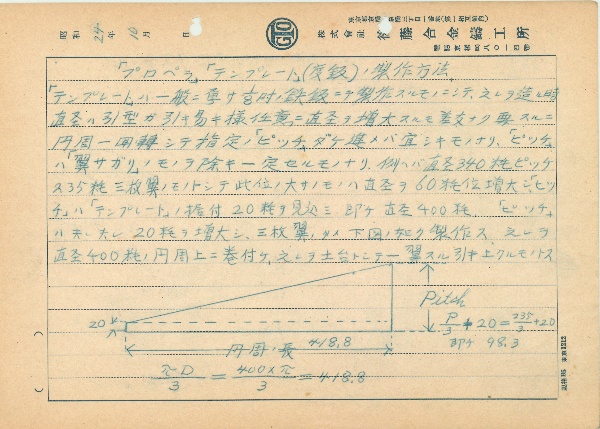 昭和 24年 10月 日
東京都京橋
株式会社 後藤合金鑄工所
「プロペラ」「テンプレート」(定鈑)ノ製作方法
「テンプレート」ハ一般ニ厚サ吋ノ鉄鈑ニテ製作スルモノニシテ、之レヲ造ル時
直径ハ引型ガ引キ易キ様任意ニ直径ヲ増大スルモ差支ナク要スルニ
円周一回轉シテ指定ノ「ピッチ」ダケ進メバ宜シキモノナリ、「ピッチ」
ハ「翼サガリ」ノモノヲ除キ一定セルモノナリ、例ヘバ直径340粍ピッチ
235粍 三枚翼ノモノトシテ此位ノ大サノモノハ直径ヲ60粍位増大シ「ピッ
チ」ハ「テンプレート」ノ据付 20粍ヲ見込ミ 即チ 直径400粍、「ピッチ」
ハ 20粍ヲ増大シ、三枚翼ノタメ下図ノ如ク製作ス、之レヲ
直径400粍ノ円周上ニ巻付ケ、之レヲ土台トシテ一翼スル引キ上クルモノトス
20
Pitch
P/3 + 20 = 235/3 + 20
即チ 98.3
円周ノ長 418.8
πD/3 = 400×π/3 = 418.8